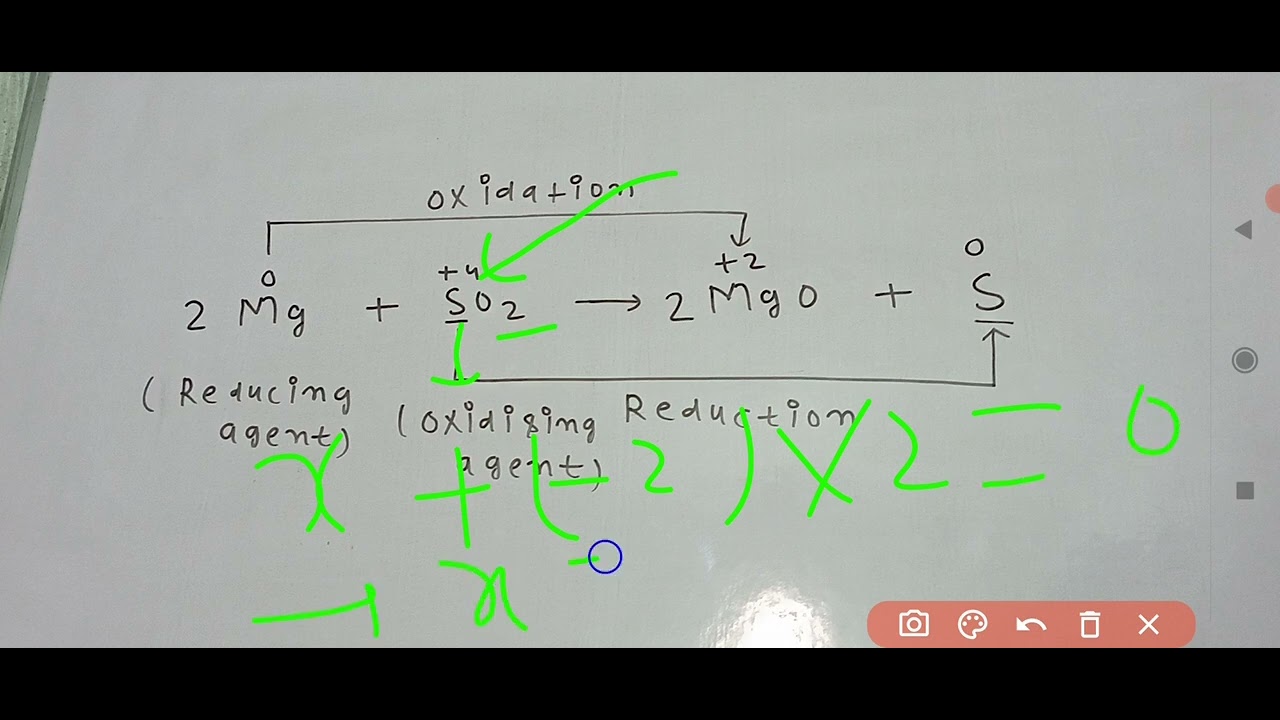 oxidation
0 +4 +2 0
2 Mg + SO2 → 2 MgO + S
(Reducing agent)
(oxidising agent)
Reduction
x + (-2) × 2 = 0
→ x =